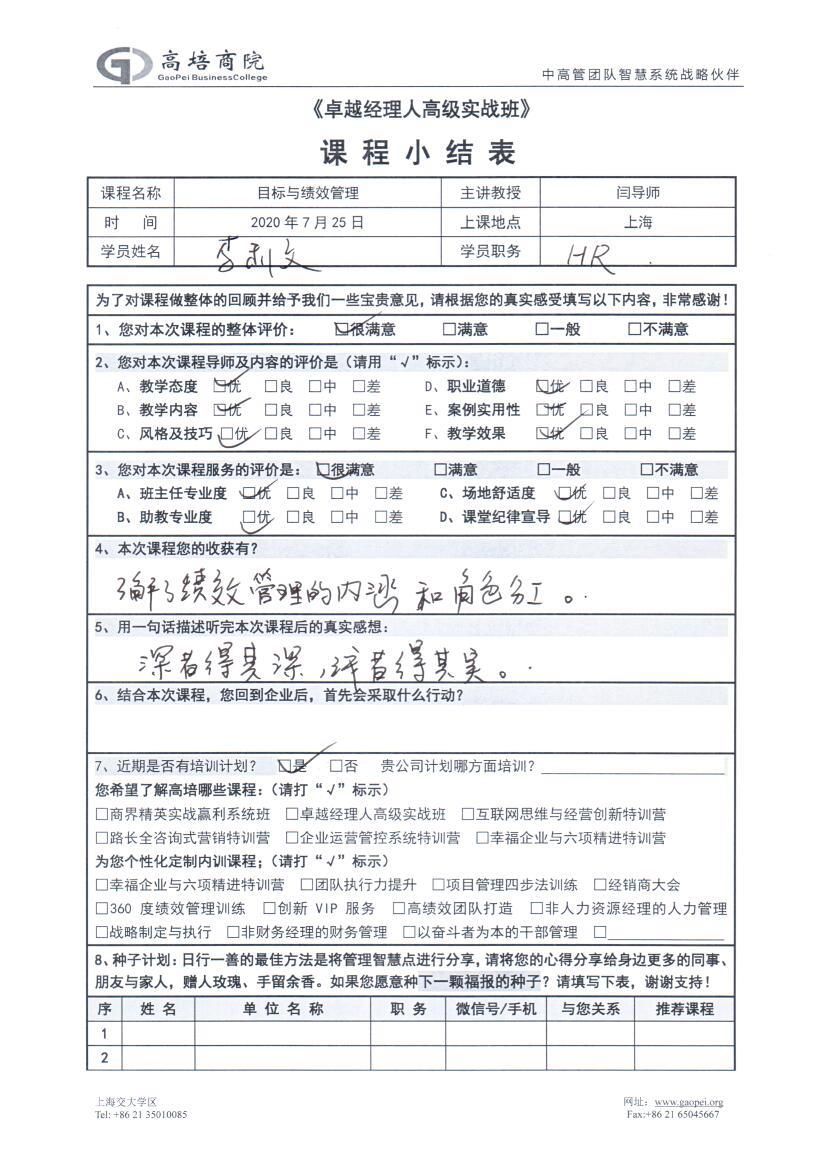 高培商院
GaoPei BusinessCollege
中高管团队智慧系统战略伙伴
《卓越经理人高级实战班》
课程小结表
课程名称 目标与绩效管理 主讲教授 闫导师
时 间 2020年7月25日 上课地点 上海
学员姓名 李利文 学员职务 HR
为了对课程做整体的回顾并给予我们一些宝贵意见，请根据您的真实感受填写以下内容，非常感谢！
1、您对本次课程的整体评价： ☑很满意 □满意 □一般 □不满意
2、您对本次课程导师及内容的评价是（请用“√”标示）：
A、教学态度 ☑优 □良 □中 □差 D、职业道德 ☑优 □良 □中 □差
B、教学内容 ☑优 □良 □中 □差 E、案例实用性 ☑优 □良 □中 □差
C、风格及技巧 ☑优 □良 □中 □差 F、教学效果 ☑优 □良 □中 □差
3、您对本次课程服务的评价是： ☑很满意 □满意 □一般 □不满意
A、班主任专业度 ☑优 □良 □中 □差 C、场地舒适度 ☑优 □良 □中 □差
B、助教专业度 ☑优 □良 □中 □差 D、课堂纪律宣导 ☑优 □良 □中 □差
4、本次课程您的收获有？
了解了绩效管理的内涵和角色分工。
5、用一句话描述听完本次课程后的真实感想：
深者得其深，浅者得其美。
6、结合本次课程，您回到企业后，首先会采取什么行动？
7、近期是否有培训计划？ ☑是 □否 贵公司计划哪方面培训？
您希望了解高培哪些课程：（请打“√”标示）
□商界精英实战赢利系统班 □卓越经理人高级实战班 □互联网思维与经营创新特训营
□路长全咨询式营销特训营 □企业运营管控系统特训营 □幸福企业与六项精进特训营
为您个性化定制内训课程；（请打“√”标示）
□幸福企业与六项精进特训营 □团队执行力提升 □项目管理四步法训练 □经销商大会
□360 度绩效管理训练 □创新 VIP 服务 □高绩效团队打造 □非人力资源经理的人力管理
□战略制定与执行 □非财务经理的财务管理 □以奋斗者为本的干部管理 □
8、种子计划：日行一善的最佳方法是将管理智慧点进行分享，请将您的心得分享给身边更多的同事、
朋友与家人，赠人玫瑰、手留余香。如果您愿意种下一颗福报的种子？请填写下表，谢谢支持！
序 姓名 单位名称 职务 微信号/手机 与您关系 推荐课程
1
2
上海交大学区 网址：www.gaopei.org
Tel: +86 21 35010085 Fax:+86 21 65045667